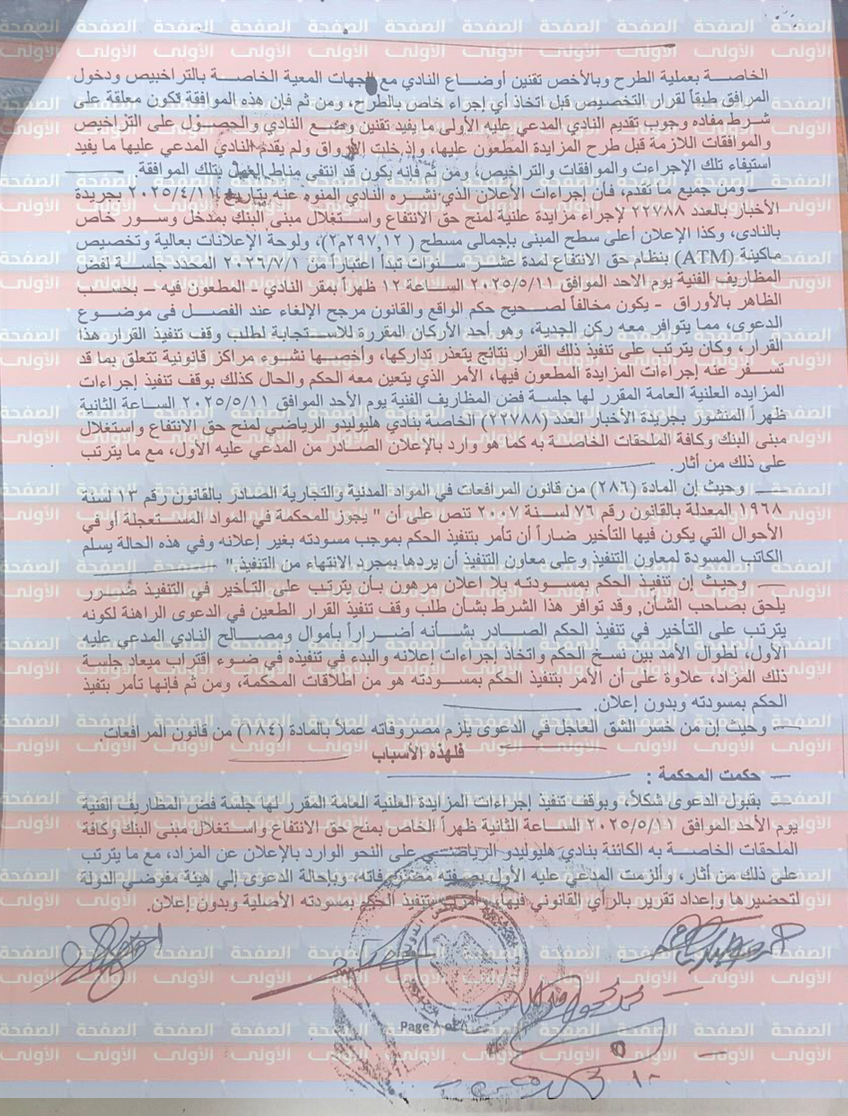 الخاصة بعملية الطرح وبالأخص تقنين أوضاع النادي مع الجهات المعية الخاصة بالتراخيص ودخول
المرافق طبقاً لقرار التخصيص قبل اتخاذ أي إجراء خاص بالطرح، ومن ثم فإن هذه الموافقة تكون معلقة على
شرط مفاده وجوب تقديم النادي المدعي عليه الأولى ما يفيد تقنين وضع النادي والحصول على التراخيص
والموافقات اللازمة قبل طرح المزايدة المطعون عليها، وإذ خلت الأوراق ولم يقدم النادي المدعي عليها ما يفيد
استيفاء تلك الإجراءت والموافقات والتراخيص، ومن ثم فأنه يكون قد انتفى مناط العمل بتلك الموافقة.
ومن جميع ما تقدم، فأن إجراءات الأعلان الذي نشره النادي المنوه عنه بتاريخ ٢٠٢٥/٤/١٧ بجريدة
الأخبار بالعدد ٢٢٧٨٨ لإجراء مزايدة علنية لمنح حق الانتفاع واستغلال مبنى البنك بمدخل وسور خاص
بالنادى، وكذا الإعلان أعلى سطح المبنى بإجمالى مسطح (٢٩٧,١٢م٢)، ولوحة الإعلانات بعالية وتخصيص
ماكينة (ATM) بنظام حق الانتفاع لمدة عشر سنوات تبدأ اعتباراً من ٢٠٢٦/٧/١ المحدد جلسة لفض
المظاريف الفنية يوم الاحد الموافق ٢٠٢٥/٥/١١ الساعة ١٢ ظهراً بمقر النادي - المطعون فيه – بحسب
الظاهر بالأوراق - يكون مخالفاً لصحيح حكم الواقع والقانون مرجح الإلغاء عند الفصل فى موضوع
الدعوى، مما يتوافر معه ركن الجدية، وهو أحد الأركان المقررة للاستجابة لطلب وقف تنفيذ القرار هذا
القرار، وكان يترتب على تنفيذ ذلك القرار نتائج يتعذر تداركها، وأخصها نشوء مراكز قانونية تتعلق بما قد
تسفر عنه إجراءات المزايدة المطعون فيها، الأمر الذي يتعين معه الحكم والحال كذلك بوقف تنفيذ إجراءات
المزايده العلنية العامة المقرر لها جلسة فض المظاريف الفنية يوم الأحد الموافق ٢٠٢٥/٥/١١ الساعة الثانية
ظهراً المنشور بجريدة الأخبار العدد (٢٢٧٨٨) الخاصة بنادي هليوليدو الرياضي لمنح حق الانتفاع واستغلال
مبنى البنك وكافة الملحقات الخاصة به كما هو وارد بالإعلان الصادر من المدعي عليه الأول، مع ما يترتب
على ذلك من أثار.
وحيث إن المادة (٢٨٦) من قانون المرافعات في المواد المدنية والتجارية الصادر بالقانون رقم ١٣ لسنة
١٩٦٨ المعدلة بالقانون رقم ٧٦ لسنة ٢٠٠٧ تنص على أن " يجوز للمحكمة في المواد المستعجلة او في
الأحوال التي يكون فيها التأخير ضاراً أن تأمر بتنفيذ الحكم بموجب مسودته بغير إعلانه وفي هذه الحالة يسلم
الكاتب المسودة لمعاون التنفيذ وعلى معاون التنفيذ أن يردها بمجرد الانتهاء من التنفيذ."
وحيث إن تنفيذ الحكم بمسودته بلا اعلان مرهون بأن يترتب على التأخير في التنفيذ ضرر
يلحق بصاحب الشأن, وقد توافر هذا الشرط بشأن طلب وقف تنفيذ القرار الطعين في الدعوى الراهنة لكونه
يترتب على التأخير في تنفيذ الحكم الصادر بشأنه أضراراً بأموال ومصالح النادي المدعي عليه
الأول، لطوال الأمد بين نسخ الحكم واتخاذ إجراءات إعلانه والبدء في تنفيذه في ضوء اقتراب ميعاد جلسة
ذلك المزاد، علاوة على أن الأمر بتنفيذ الحكم بمسودته هو من اطلاقات المحكمة، ومن ثم فإنها تأمر بتفيذ
الحكم بمسودته وبدون إعلان.
وحيث إن من خسر الشق العاجل في الدعوى يلزم مصروفاته عملاً بالمادة (١٨٤) من قانون المرافعات.
فلهذه الأسباب
حكمت المحكمة :
بقبول الدعوى شكلاً، وبوقف تنفيذ إجراءات المزايدة العلنية العامة المقرر لها جلسة فض المظاريف الفنية
يوم الأحد الموافق ٢٠٢٥/٥/١١ الساعة الثانية ظهراً الخاص بمنح حق الانتفاع واستغلال مبنى البنك وكافة
الملحقات الخاصة به الكائنة بنادي هليوليدو الرياضي على النحو الوارد بالإعلان عن المزاد، مع ما يترتب
على ذلك من أثار، وألزمت المدعي عليه الأول بصفته مصروفاته، وبإحالة الدعوى إلي هيئة مفوضي الدولة
لتحضيرها وإعداد تقرير بالرأي القانوني فيها، وأمرت بتنفيذ الحكم بمسودته الأصلية وبدون إعلان.
Page ٨ of ٨
الصفحة الأولى